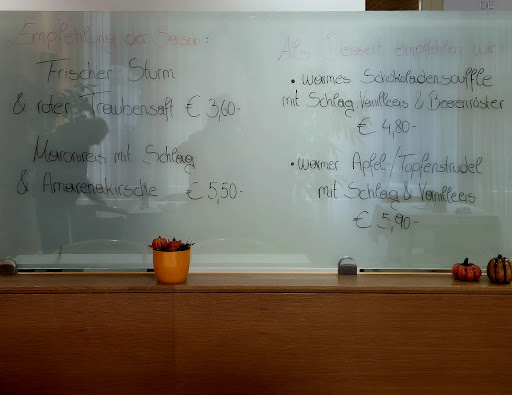 Empfehlung der Saison:
Frischer Sturm
& roter Traubensaft € 3,60.-
Maronireis mit Schlag
& Amarenakirsche € 5,50.-
Als Dessert empfehlen wir:
• warmes Schokoladensouffle
mit Schlag Vanilleeis & Beerenröster
€ 4,80.-
• warmer Apfel-/Topfenstrudel
mit Schlag & Vanilleeis
€ 5,90.-